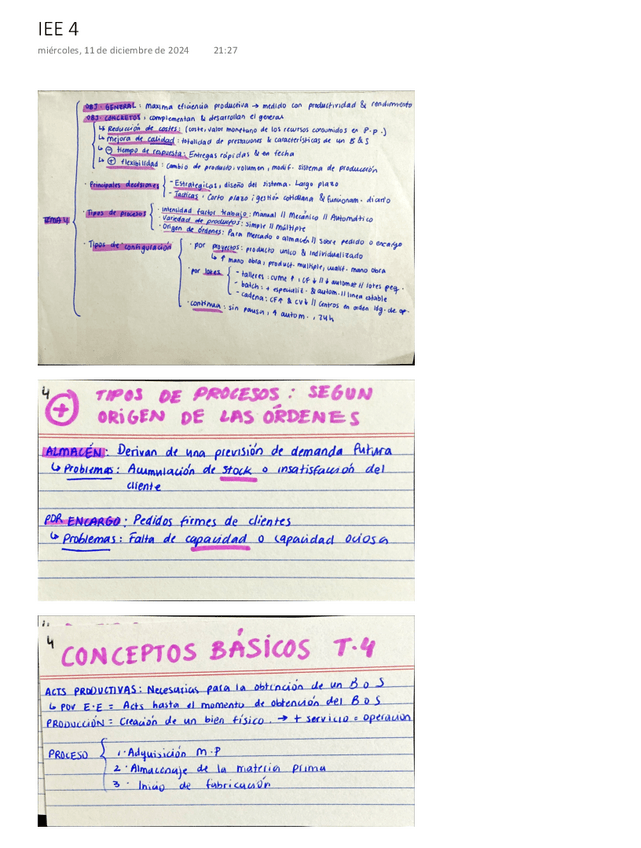 IEE 4
miércoles, 11 de diciembre de 2024 21:27
OBJ. GENERAL: maxima eficiencia productiva → medido con productividad & rendimiento
OBJ. CONCRETOS: complementan & desarrollan el general
↳ Reducción de costes: (coste: valor monetario de los recursos consumidos en P.p.)
↳ Mejora de calidad: totalidad de prestaciones & características de un B & S
↳ ⊖ tiempo de respuesta: Entregas rápidas & en fecha
↳ ⊕ flexibilidad: cambio de producto, volumen, modif. sistema de producción
TEMA 4
· Principales decisiones
- Estrategicas: diseño del sistema. Largo plazo
- Tacticas: Corto plazo; gestión cotidiana & funcionam. diario
· Tipos de procesos
· intensidad factor trabajo: manual // Mecánico // Automático
· Variedad de productos: simple // múltiple
· Origen de órdenes: Para mercado o almacén // sobre pedido o encargo
· Tipos de configuración
· por proyectos: producto unico & individualizado
↳ ↑ mano obra, product. multiple, cualif. mano obra
· por lotes
- talleres: cvme ↑, CF ↓ // ↓ automat // lotes peq.
- batch: + especializ. & autom. // linea estable
- cadena: CF↑ & CV↓ // Centros en orden lóg. de op.
· continua: sin pausa, ↑ autom., 24h
4
⊕ TIPOS DE PROCESOS: SEGUN
ORIGEN DE LAS ÓRDENES
ALMACÉN: Derivan de una previsión de demanda futura
↳ Problemas: Acumulación de stock o insatisfacción del
cliente
POR ENCARGO: Pedidos firmes de clientes
↳ Problemas: Falta de capacidad o capacidad ociosa
4
CONCEPTOS BÁSICOS T.4
ACTS PRODUCTIVAS: Necesarias para la obtención de un B o S
↳ por E.E = Acts hasta el momento de obtención del B o S
PRODUCCIÓN = Creación de un bien físico. → + servicio = operación
PROCESO
1· Adquisición M.P
2· Almacenaje de la materia prima
3· Inicio de fabricación